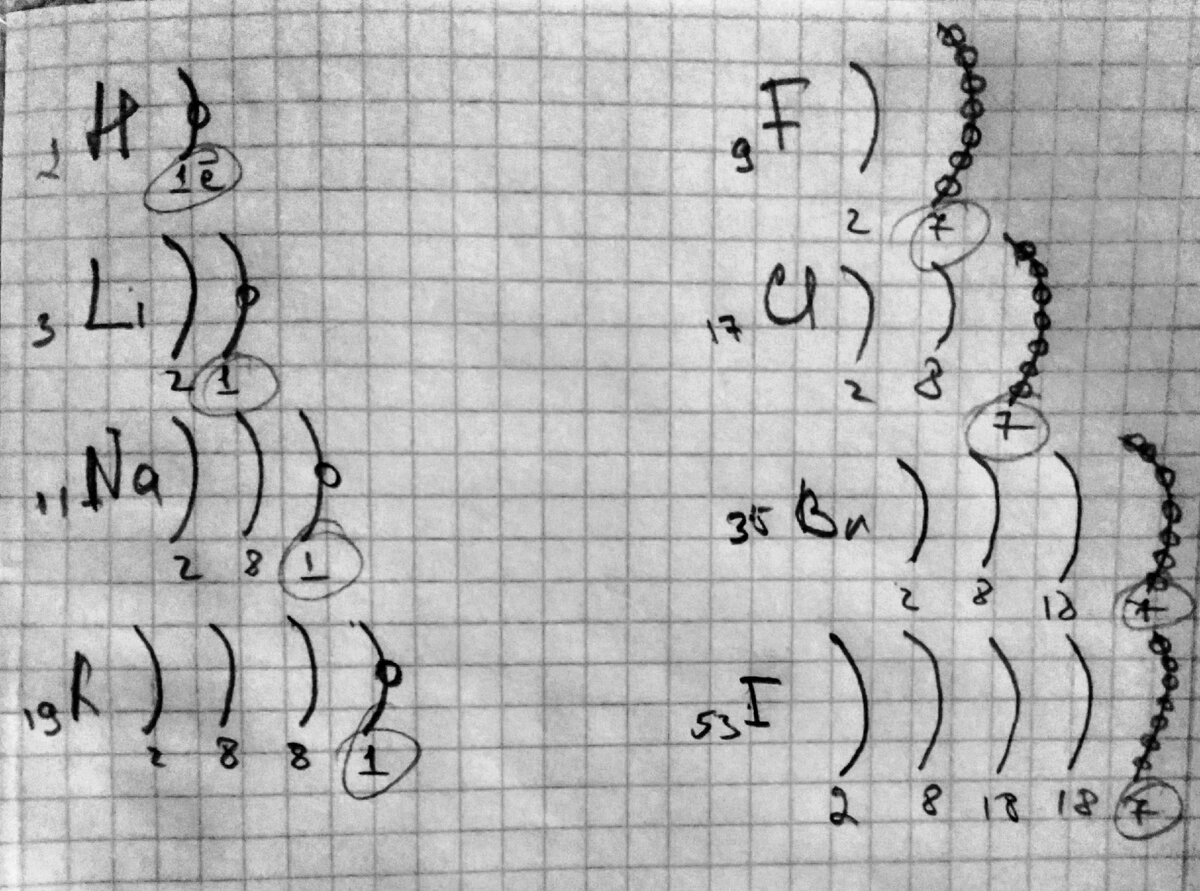 1 H 1ē
3 Li 2 1
11 Na 2 8 1
19 K 2 8 8 1
9 F 2 7
17 Cl 2 8 7
35 Br 2 8 18 7
53 I 2 8 18 18 7